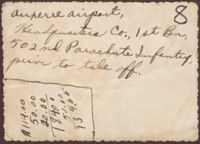 Auxerre airport,
8
Headquarters Co., 1st Bn,
502nd Parachute Infantry,
prior to take off.
$114.00
50.00
20.00